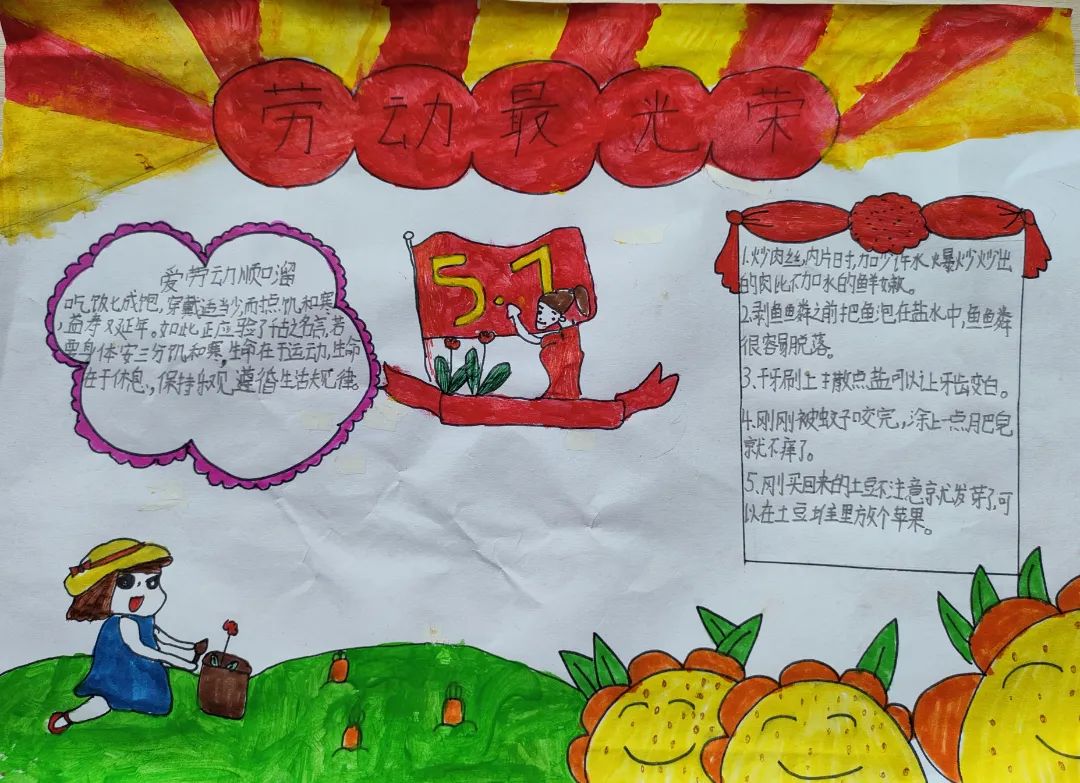 劳动最光荣
爱劳动顺口溜
吃饭七成抱,穿戴适当少,而点饥和寒
,益寿又延年。如此正应验了古之名言,若
要身体安三分饥和寒,生命在于运动,生命
在于休息,保持乐观,遵循生活规律。
5.1
1.炒肉丝,肉片时,加少许水爆炒,炒出
的肉比不加水的鲜嫩。
2.剥鱼鱼粦之前把鱼泡在盐水中,鱼鱼粦
很容易脱落。
3.干牙刷上撒点盐可以让牙齿变白。
4.刚刚被蚊子咬完,涂上一点月巴皂
就不痒了。
5.刚买回来的土豆不注意就发芽了,可
以在土豆堆里放个苹果。